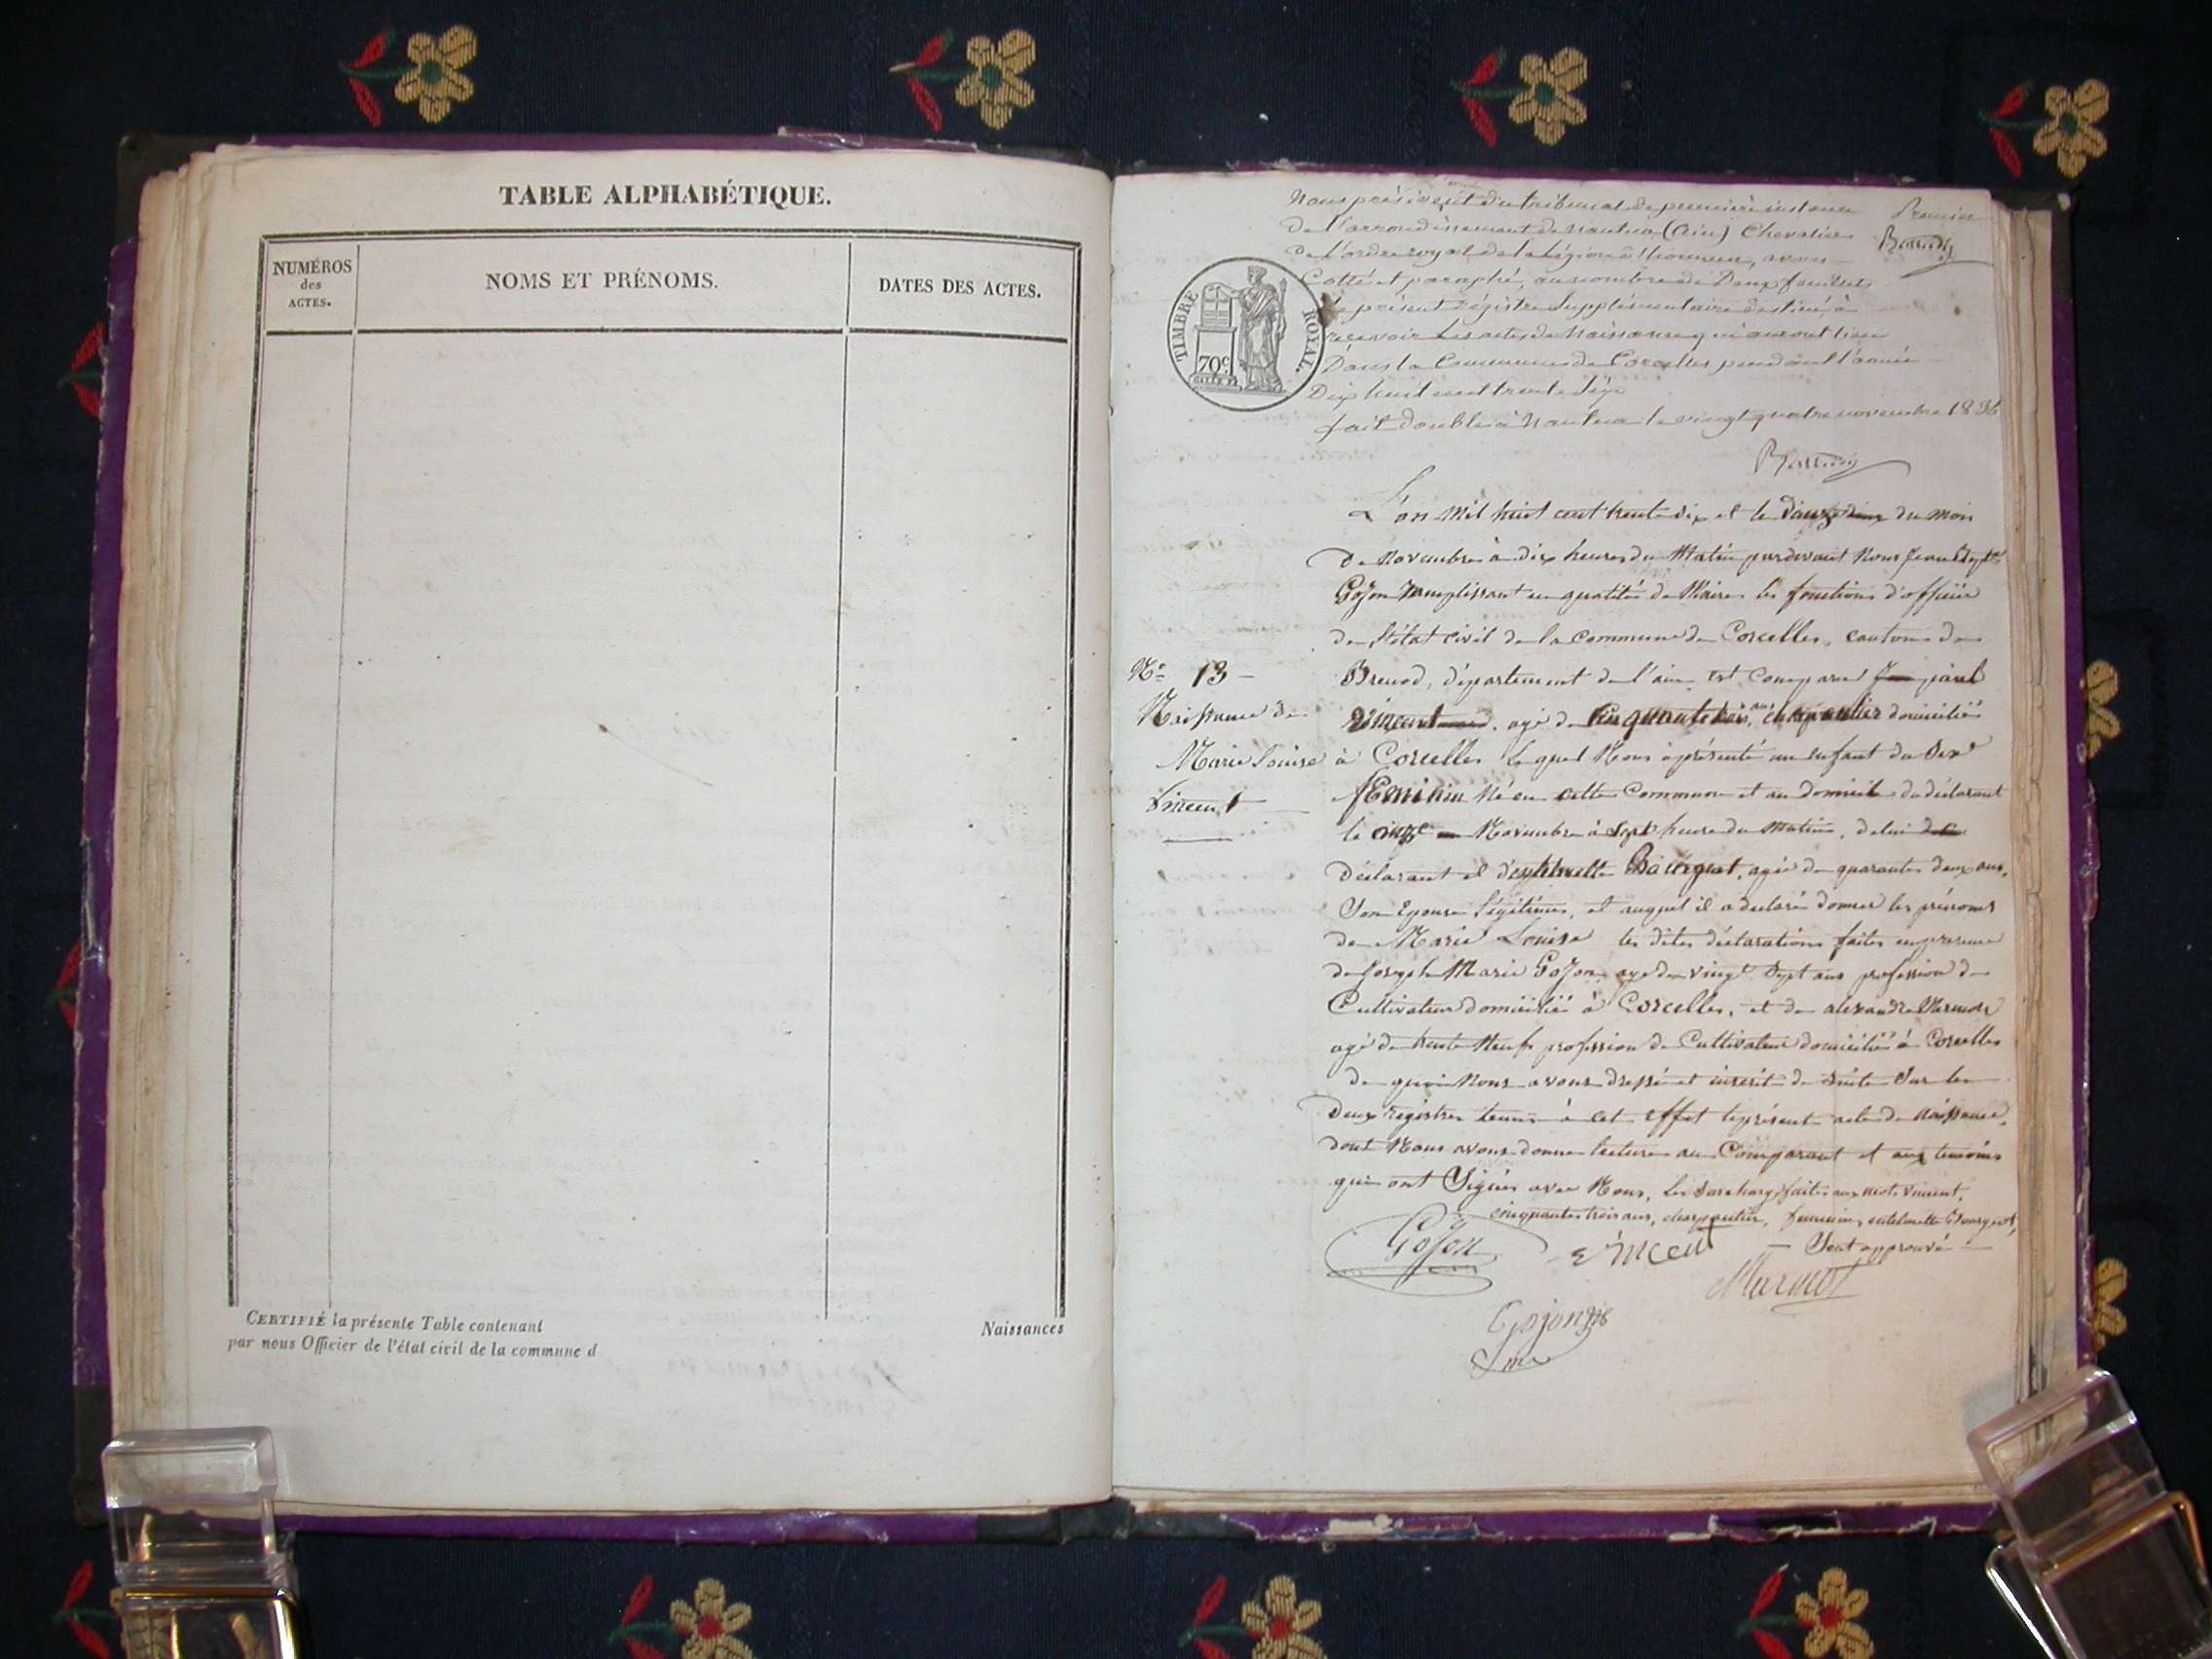 TABLE ALPHABÉTIQUE.
NUMÉROS
des
ACTES.
NOMS ET PRÉNOMS.
DATES DES ACTES.
CERTIFIÉ la présente Table contenant
Naissances
par nous Officier de l'état civil de la commune d
Nous président du tribunal de première instance
Premier
de l'arrondissement de Nantua (Ain) Chevalier
de l'ordre royal de la Légion d'honneur, avons
Cotté et paraphé, au nombre de Deux feuillets
le présent régistre supplémentaire destiné à
recevoir les actes de Naissance qui auront lieu
Dans la Commune de Corcelles pendant l'année
Dix huit cent trente six
fait double à Nantua le vingt quatre novembre 1836
TIMBRE ROYAL.
70c
L'an mil huit cent trente six et le du mois
de Novembre à dix heures du Matin pardevant Nous Jean
Gojon remplissant en qualité de Maire les fonctions d'officier
de l'état civil de la Commune de Corcelles, canton de
Brenod, département de l'ain est comparu paul
vincent agé de cinquante trois ans, charpentier domicilié
à Corcelles le quel Nous à présenté un enfant du Sexe
féminin Né en cette Commune et au domicile du déclarant
le Novembre à Sept heure du matin, de lui
Déclarant et d'enthelmette Bourgeot, agée de quarante deux ans,
Son Epouse légitime, et auquel il a déclaré donner les prénoms
de Marie Louise les dites déclarations faites en présence
de Joseph Marie Gojon agé de vingt Sept ans profession de
Cultivateur domicilié à Corcelles, et de alexandre Marmot
agé de trente Neuf profession de Cultivateur domicilié à Corcelles
de quoi Nous avons dressé et inscrit de suite Sur les
deux registres tenus à cet effet le présent acte de Naissance,
dont Nous avons donné lecture au Comparant et aux témoins
qui ont Signés avec Nous, les Surcharges faites aux mots vincent,
cinquante trois ans, charpentier, féminin, enthelmette Bourgeot,
Sont approuvé
No 13
Naissance de
Marie Louise
Vincent
Gojon
vincent
Marmot
Gojon